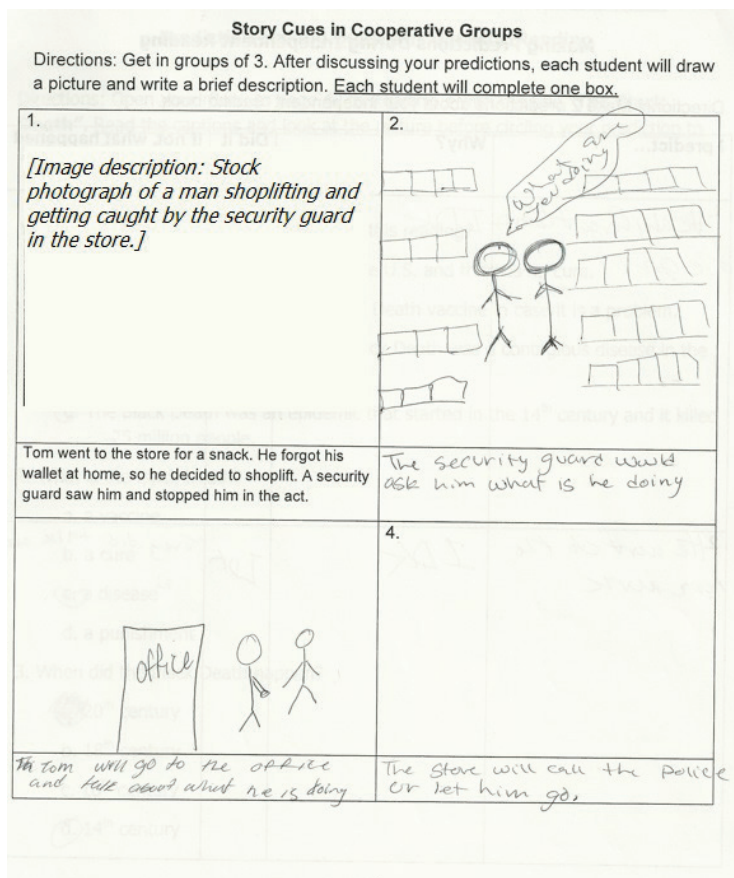 Story Cues in Cooperative Groups
Directions: Get in groups of 3. After discussing your predictions, each student will draw
a picture and write a brief description. Each student will complete one box.
1.
[Image description: Stock
photograph of a man shoplifting and
getting caught by the security guard
in the store.]
2.
what are
you doing
Tom went to the store for a snack. He forgot his
wallet at home, so he decided to shoplift. A security
guard saw him and stopped him in the act.
The security guard would
ask him what is he doing
office
Tom will go to the office
and talk about what he is doing
4.
The Store will call the police
or let him go.